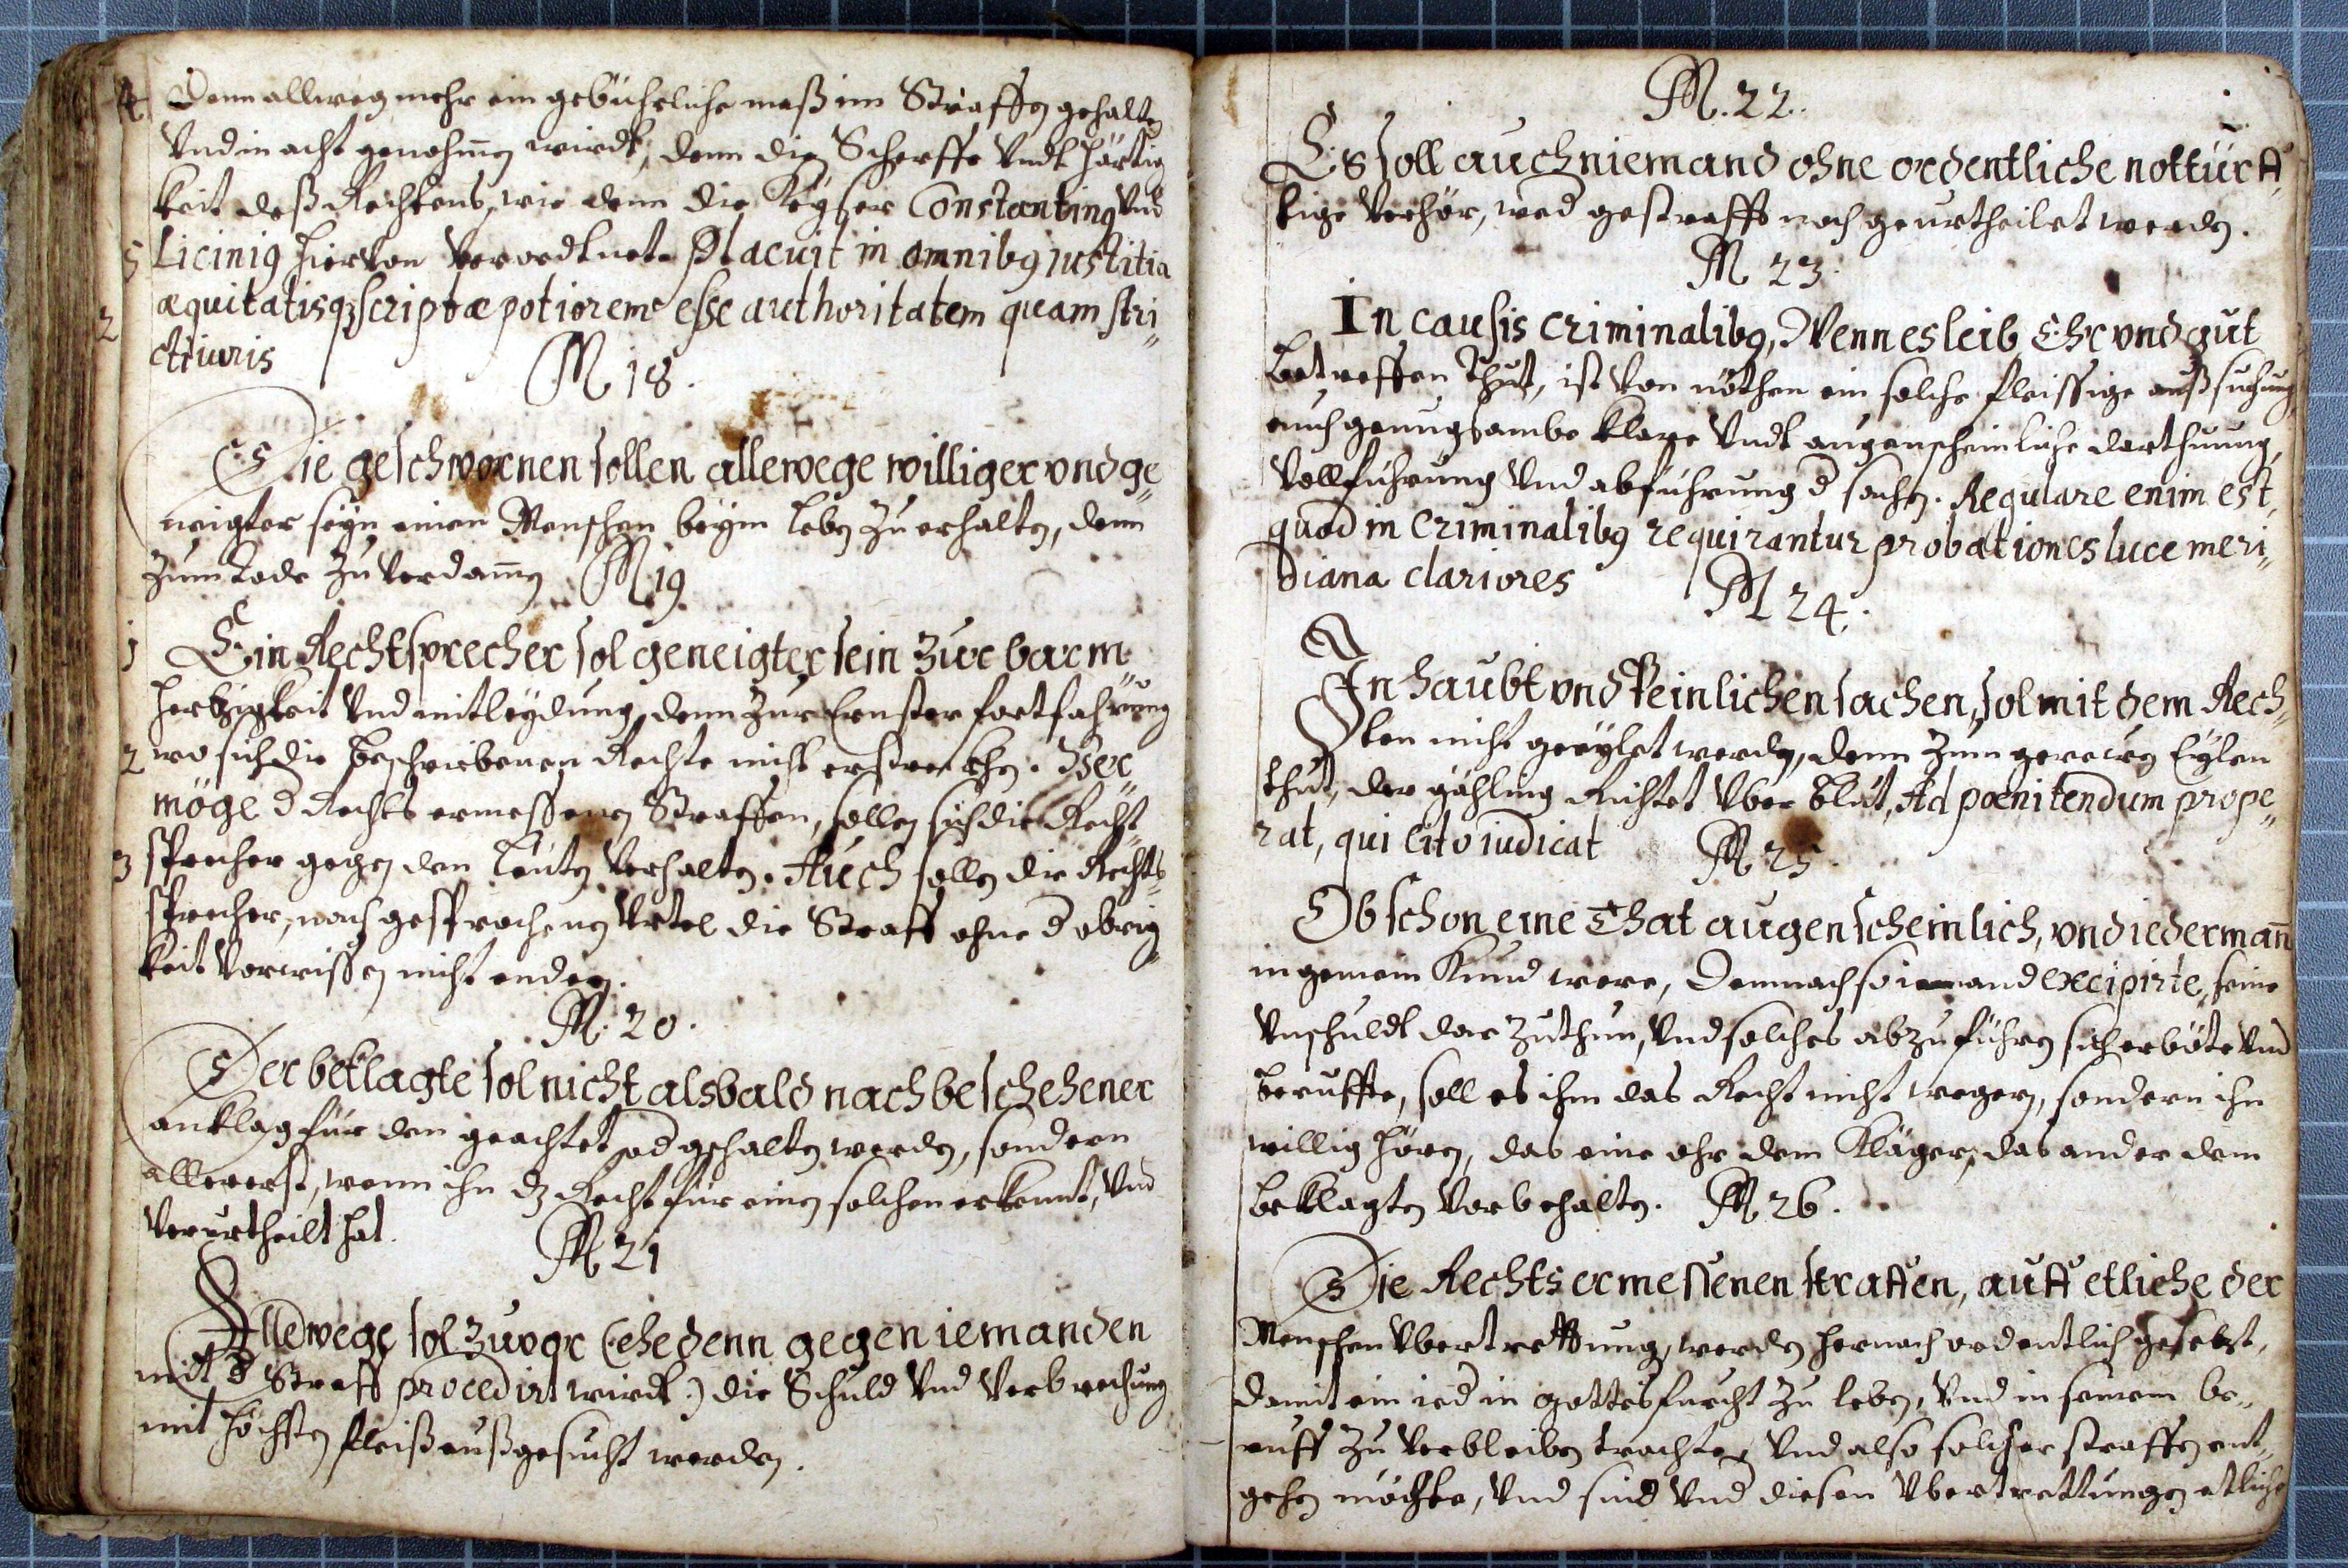 4 Denn allweg mehr ein gebührliche maß im Straffen gehalten
Vnd in acht genohmen wirdt, denn die Scherffe Vndt härtig
keit deß Rechtens, wie denn die Keyser Constantinq Vnd
5 Liciniq hiervon Verordtnet. Placuit in omnibq justitia
2 æquitatisqꝫ scriptæ potiorem esse authoritatem quam stri„
cti iuris
A 18.
Die geschwornen sollen allewege williger vnd ge„
neigter seyn einen Menschen beym leben zu erhalten, denn
zum Tode zu Verdamen A 19.
1 Ein Rechtsprecher sol geneigter sein zur barm„
hertzigkeit Vnd mitleydung, denn zur Ernster fortfahrung
2 wo sich die beschriebenen Rechte nicht erstrecken. Ver„
möge d Rechts ermessenen Straffen, sollen sich die Recht„
3 sprecher gegen den leuten Verhalten. Auch sollen die Rechts„
sprecher, nach gesprochenen Vrtel die Straff ohne d obrig„
keit Vorwissen nicht enden.
A. 20.
Der beklagte sol nicht alsbald nach beschehener
anklag für den geachtet od gehalten werden, sondern
allererst, wenn ihn dz Recht für einen solchen erkennt, Vnd
Verurtheilt hat.
A 21
Allewege sol zuvor (ehe denn gegen iemanden
mit d Straff procedirt wirdt) die Schuld Vnd Verbrechung
mit höchsten fleiß außgesucht werden.
A. 22.
Es soll auch niemand ohne ordentliche nottürff„
tige Verhör, wed gestrafft noch geurtheilet werden.
A 23.
In causis criminalibq, Wenn es leib Ehr vnd gut
betreffen thut, ist Von nöthen ein solche fleissige außsuchung,
auch genugsambe klare Vndt augenscheinliche darthuung,
Vollführung Vnd abführung d sachen. Regulare enim est,
quod in criminalibq requirantur probationes luce meri„
diana clariores A 24.
In haubt vnd Peinlichen sachen, sol mit dem Rech„
ten nicht geeylet werden, denn zum gerewen Eylen
thut, der gähling Richtet Vber blut, Ad pœnitendum prope„
rat, qui cito iudicat A 25.
Ob schon eine That augenscheinlich, vnd iederman̄
in gemein Kund were, Dennnach so iemand excipirte, seine
Vnschuldt dar zuthun, Vnd solches abzuführen sich erböte Vnd
beruffte, soll es ihm das Recht nicht wegern, sondern ihn
willig hören, das eine ohr dem Kläger, das ander dem
beklagten Vorbehalten. A 26.
Die Rechts ermessenen straffen, auff etliche der
Menschen Vbertrettung, werden hernach ordentlich gesetzt,
damit ein ied in gottesfurcht zu leben, Vnd in seinem be„
ruff zu Verbleiben trachte, Vnd also solcher straffen ent„
gehen möchte, Vnd sind Vnd diesen Vbertrettungen etliche